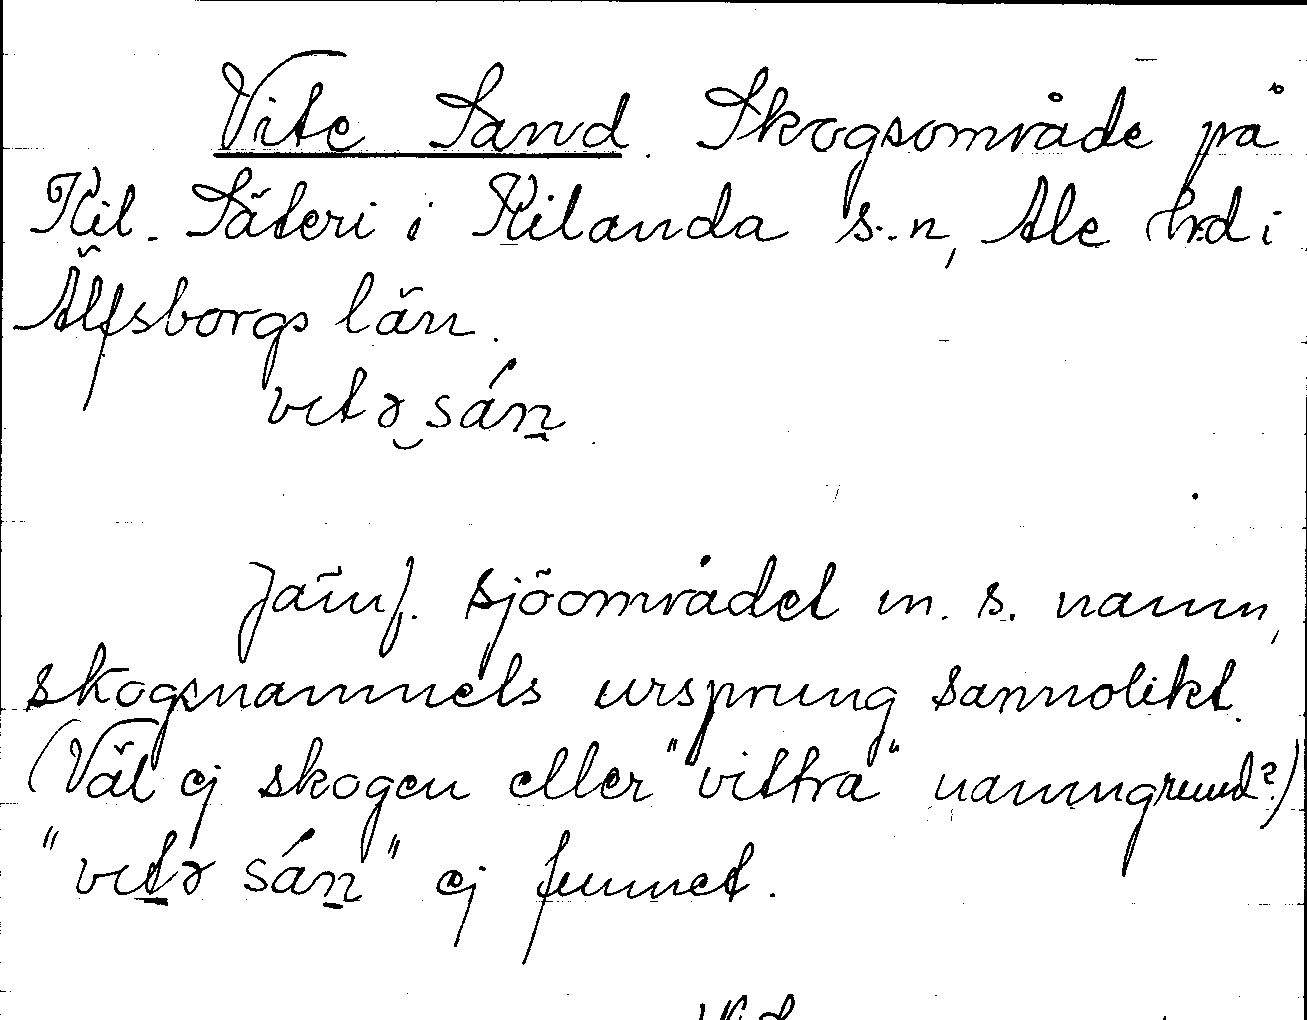 Vite Sand. Skogsområde på
Kil. Säteri i Kilanda s..n, Ale hd i
Älfsborgs län.
vɩtə‿sán̠
Jämf. sjöområdet m. s. namn,
skogsnamnets ursprung sannolikt.
(Väl ej skogen eller "vittra" namngrund?)
"vɩt̠ə sán̠" ej funnet.